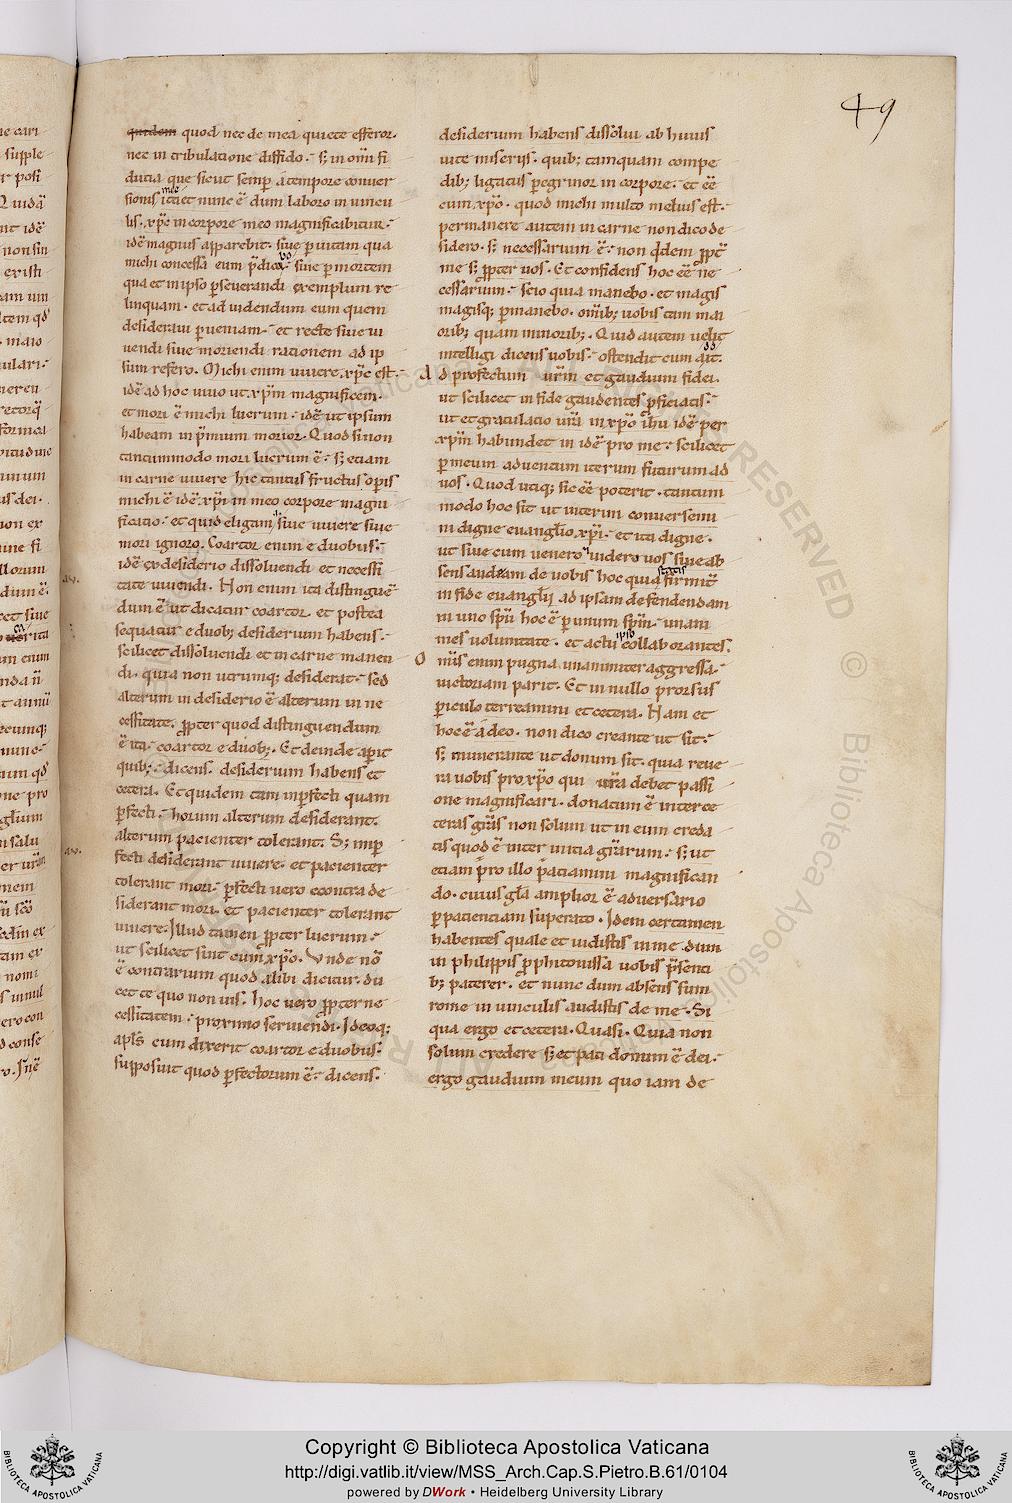 49
quidem quod nec de mea quiete efferor.
nec in tribulatione diffido. s; in om̅i fi
ducia que sicut semp̱ a tempore conuer
sionis mee ita et nunc ē dum laboro in uincu
lis. xp̅c in corpore meo magnificabitur.
idē magnus apparebit. siue p̱ uitam qua
michi concessa eum p̅dicabo. siue p̱ mortem
qua et in ipso p̱seuerandi exemplum re
linquam. et ad uidendum eum quem
desideraui p̱ueniam. et recte siue ui
uendi siue moriendi rationem ad ip
sum refero. Michi enim uiuere xp̅c est.
idē ad hoc uiuo ut xp̅m magnificem.
et mori ē michi lucrum. idē ut ipsum
habeam in p̅mium morior. Quod si non
tantummodo mori lucrum ē. s; etiam
in carne uiuere hic tantus fructus op̱is
michi ē idē xp̅i in meo corpore magni
ficatio. et quid eligam siue uiuere siue
mori ignoro. Coartor enim e duobus.
idē ex desiderio dissoluendi et necessi
tate uiuendi. Non enim ita distinguē
dum ē ut dicatur coartor. et postea
sequatur e duob; desiderium habens.
scilicet dissoluendi et in carne manen
di. quia non utrunq; desiderat. sed
alterum in desiderio ē alterum in ne
cessitate. p̱pter quod distinguendum
ē ita. coartor e duob;. Et deinde ap̱it
quib;. dicens. desiderium habens et
cetera. Et quidem tam inp̱fecti quam
p̱fecti. horum alterum desiderant.
alterum pacienter tolerant. S; imp̱
fecti desiderant uiuere. et pacienter
tolerant mori. p̱fecti uero econtra de
siderant mori. et pacienter tolerant
uiuere. Illud tamen p̱pter lucrum.
ut scilicet sint cum xp̅o. Vnde nō
ē contrarium quod alibi dicitur. du
cet te quo non uis. hoc uero p̱pter ne
cessitatem. proximo seruiendi. Ideoq;
apl̅s cum dixerit coartor e duobus.
supposuit quod p̱fectorum ē. dicens.
desiderium habens dissolui ab huius
uite miseriis. quib; tamquam compe
dib; ligatus p̱egrinor in corpore. et eē
cum xp̅o. quod michi multo melius est.
permanere autem in carne non dico de
sidero. s; necessarium ē. non q̅dem p̱pt̅
me s; p̱pter uos. Et confidens hoc eē ne
cessarium. scio quia manebo. et magis
magisq; p̱manebo. omib; uobis tam mai
orib; quam minorib;. Quid autem uelit
intelligi dicens uobis. ostendit cum ait.
Ad profectum ur̅m et gaudium fidei.
ut scilicet in fide gaudentes p̱ficiatis.
ut et gratulatio ur̅a in xp̅o ihu idē per
xp̅m habundet in idē pro me. scilicet
p̱ meum aduentum iterum futurum ad
uos. Quod utiq; sic eē poterit. tantum
modo hoc sit ut interim conuersemi
ni digne euangl̅io xp̅i. et ita digne.
ut siue cum uenero uidero uos siue ab
sens audiam de uobis hoc quia statis firmit̅
in fide euangl̅ii ad ipsam defendendam
in uno sp̅u hoc ē p̱ unum sp̅m. unam
mes uoluntate. et actu ipso collaborantes.
Omis enim pugna unanimiter aggressa.
uictoriam parit. Et in nullo prorsus
p̱iculo terreamini et cetera. Nam et
hoc ē a deo. non dico creante ut sit.
s; munerante ut donum sit. quia reue
ra uobis pro xp̅o qui ur̅a debet passi
one magnificari. donatum ē inter ce
teras gr̅as non solum ut in eum creda
tis quod ē inter initia gr̅arum. s; ut
etiam pro illo paciamini magnifican
do. cuius gl̅a amplior ē aduersario
p̱ pacienciam superato. Idem certamen
habentes quale et uidistis in me dum
in philippis p̱ phitonissa uobis p̅senti
b; paterer. et nunc dum absens sum
rome in uinculis audistis de me. Si
qua ergo et cetera. Quasi. Quia non
solum credere s; et pati donum ē dei.
ergo gaudium meum quo iam de
Copyright © Biblioteca Apostolica Vaticana
http://digi.vatlib.it/view/MSS_Arch.Cap.S.Pietro.B.61/0104
powered by DWork • Heidelberg University Library